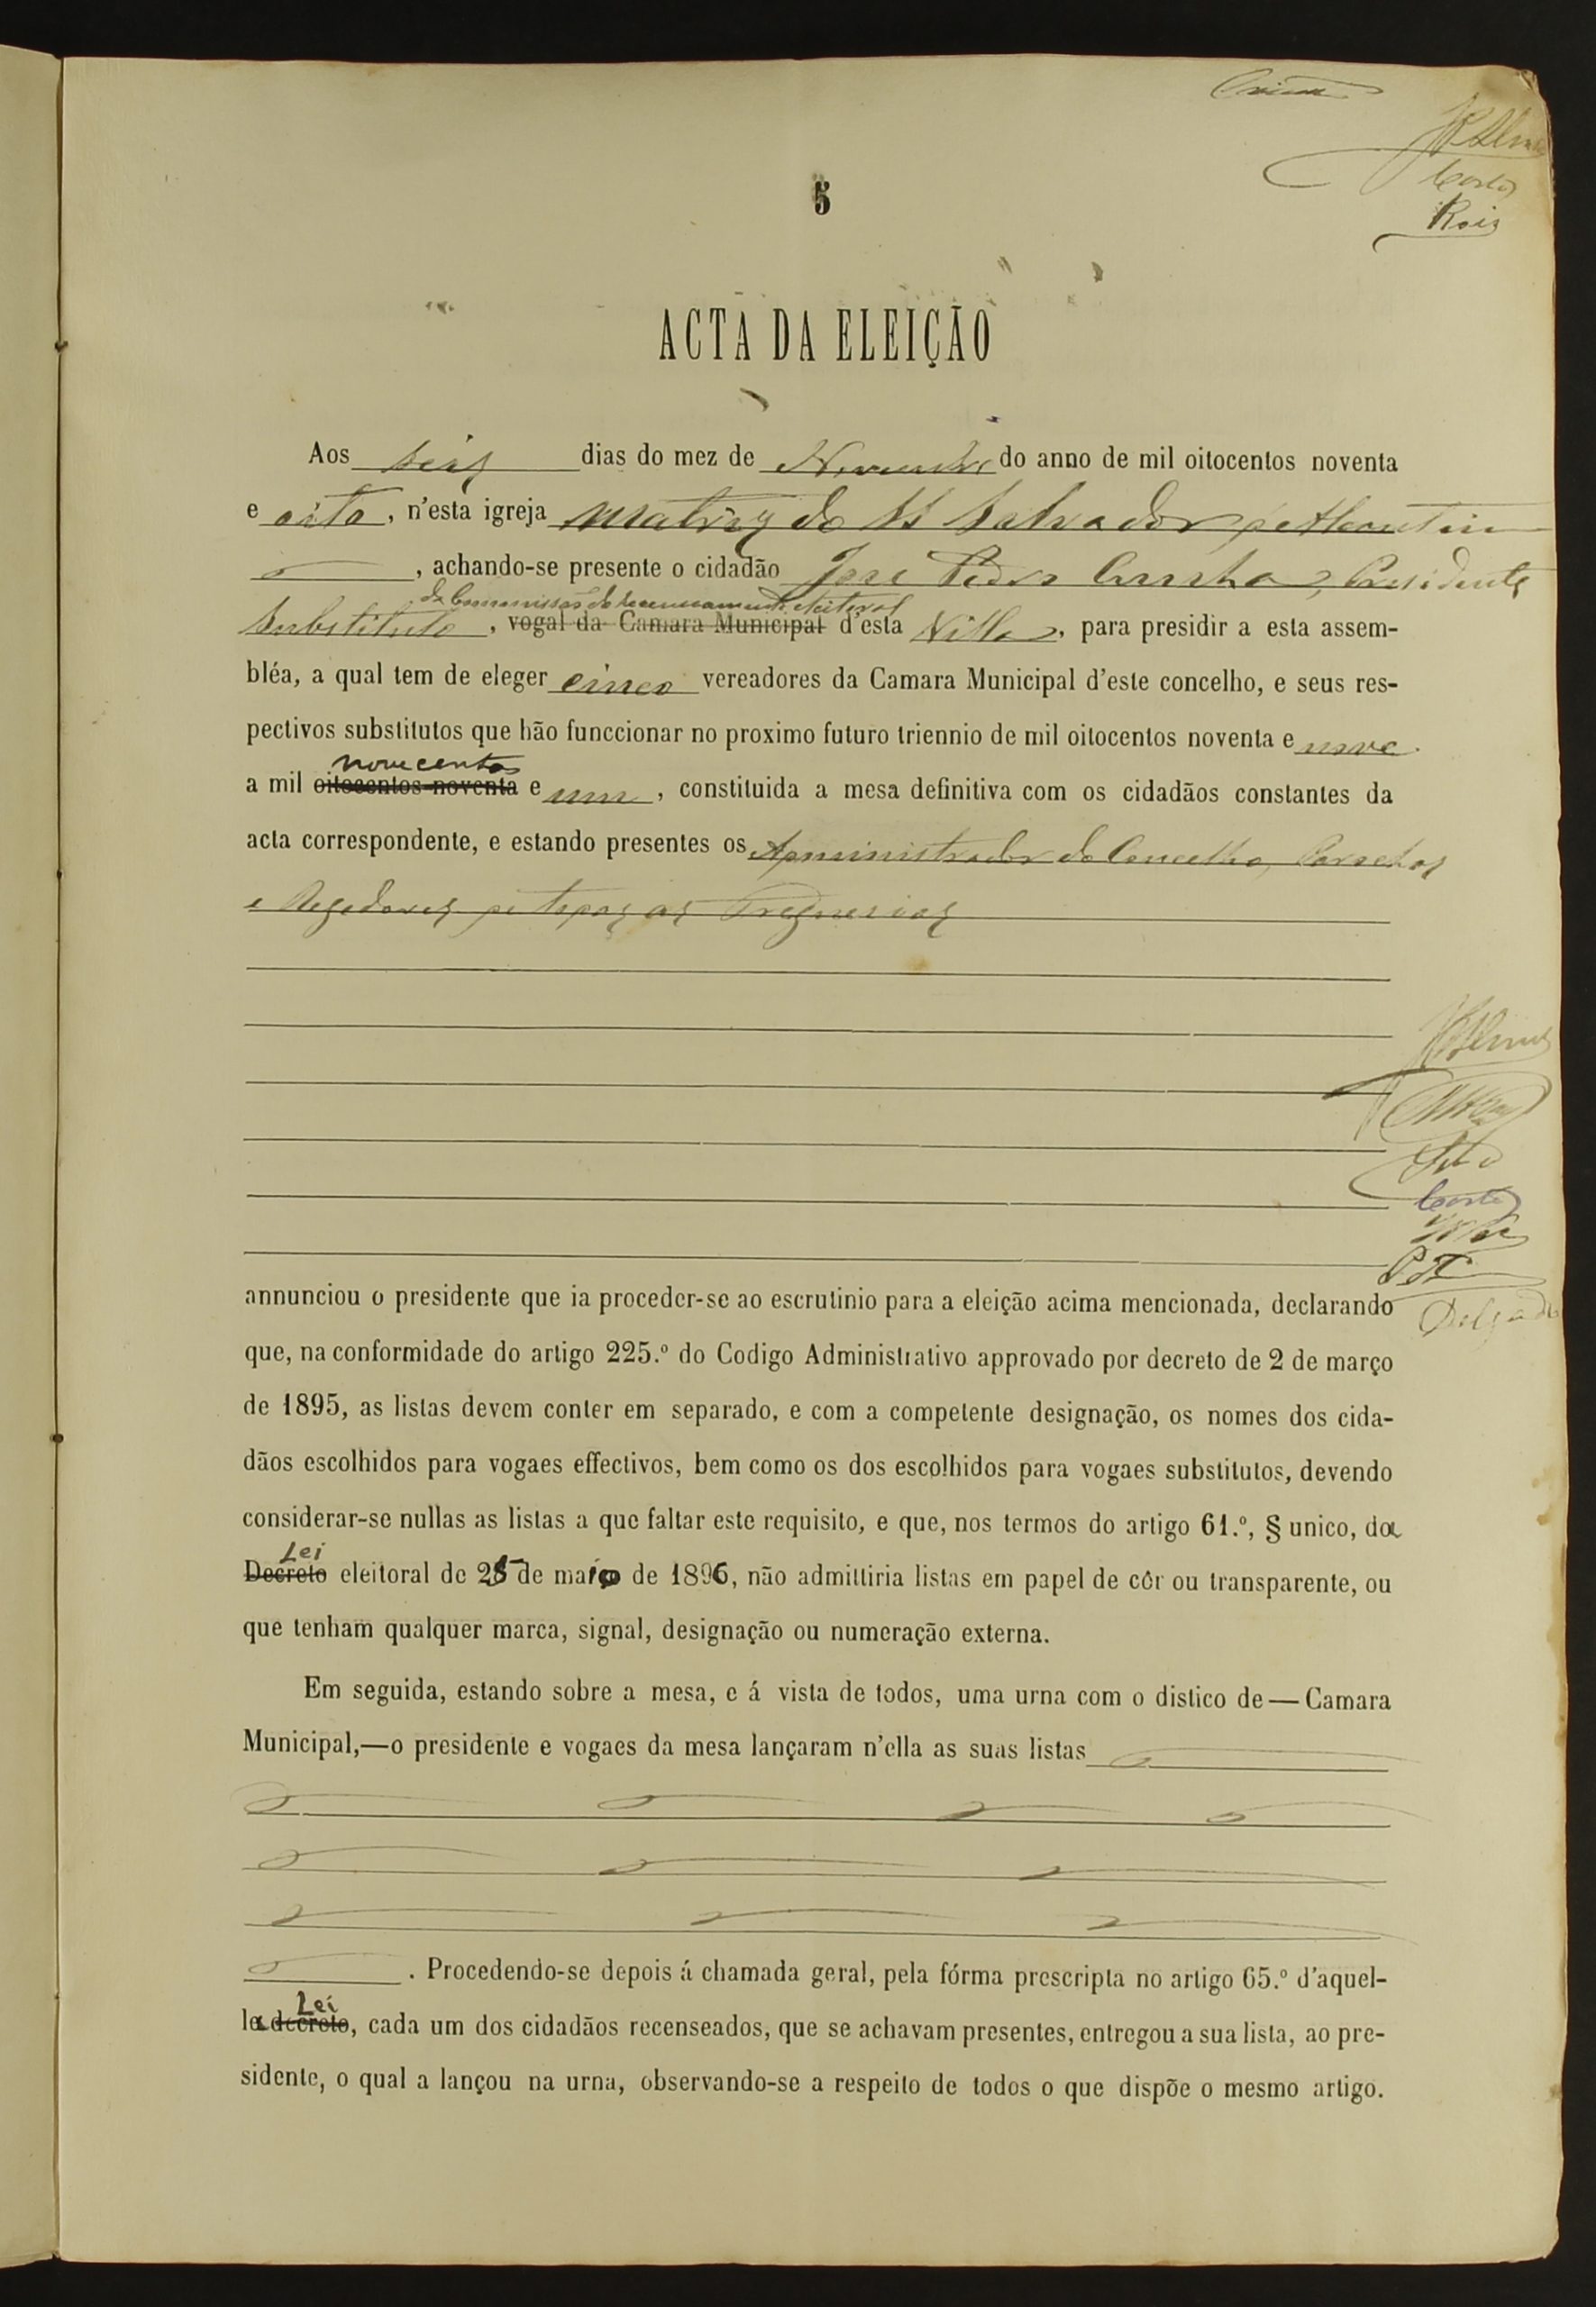 Costa
Reis
5
ACTA DA ELEIÇÃO
Aos seis dias do mez de Novembro do anno de mil oitocentos noventa
e oito, n'esta igreja Matriz do SS Salvador d'Alcoutim
, achando-se presente o cidadão José Pedro Cunha, Presidente
da Commissão do recenseamento eleitoral
Substituto, vogal da Camara Municipal d'esta Villa, para presidir a esta assem-
bléa, a qual tem de eleger cinco vereadores da Camara Municipal d'este concelho, e seus res-
pectivos substitutos que hão funccionar no proximo futuro triennio de mil oitocentos noventa e nove
novecentos
a mil oitocentos noventa e um, constituida a mesa definitiva com os cidadãos constantes da
acta correspondente, e estando presentes os Administrador do Concelho, Parochos
e Regedores de todas as Freguesias
Costa
Delgado
annunciou o presidente que ia proceder-se ao escrutinio para a eleição acima mencionada, declarando
que, na conformidade do artigo 225.º do Codigo Administrativo approvado por decreto de 2 de março
de 1895, as listas devem conter em separado, e com a competente designação, os nomes dos cida-
dãos escolhidos para vogaes effectivos, bem como os dos escolhidos para vogaes substitutos, devendo
considerar-se nullas as listas a que faltar este requisito, e que, nos termos do artigo 61.º, § unico, da
Lei
Decreto eleitoral de 25 de maio de 1896, não admittiria listas em papel de côr ou transparente, ou
que tenham qualquer marca, signal, designação ou numeração externa.
Em seguida, estando sobre a mesa, e á vista de todos, uma urna com o distico de—Camara
Municipal,—o presidente e vogaes da mesa lançaram n'ella as suas listas
. Procedendo-se depois á chamada geral, pela fórma prescripta no artigo 65.º d'aquel-
Lei
la decreto, cada um dos cidadãos recenseados, que se achavam presentes, entregou a sua lista, ao pre-
sidente, o qual a lançou na urna, observando-se a respeito de todos o que dispõe o mesmo artigo.